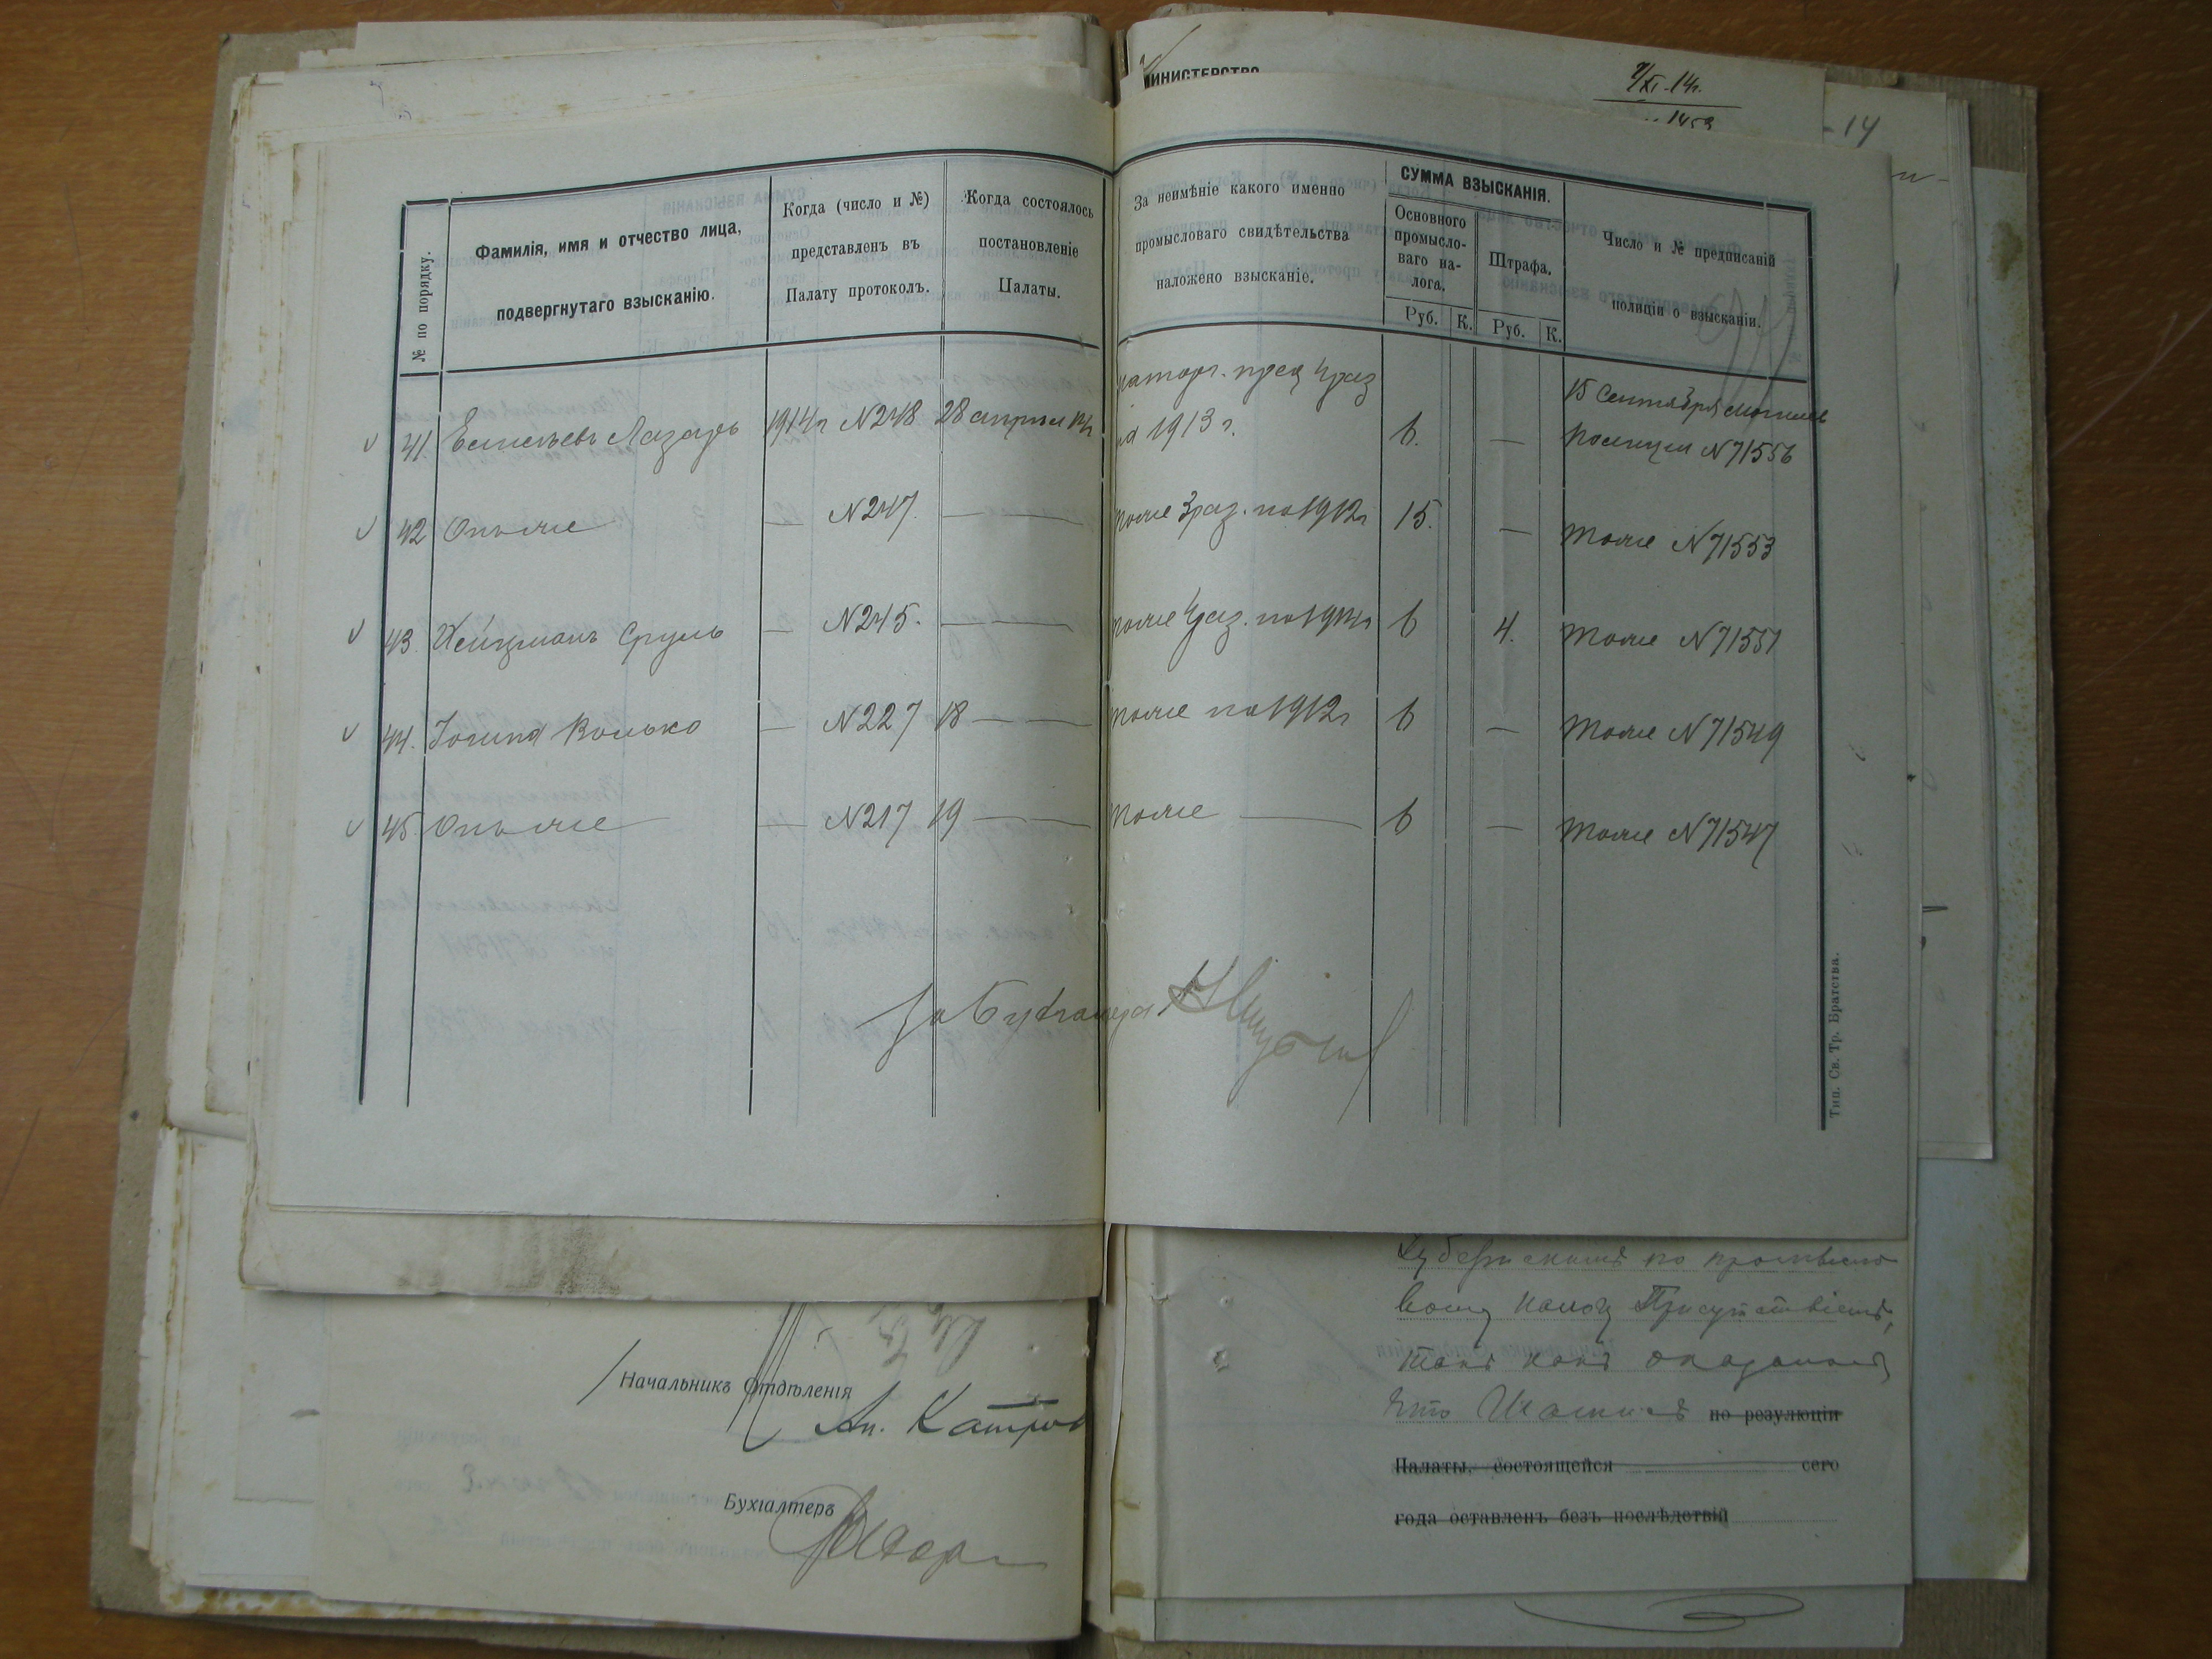 МИНИСТЕРСТВО
9/XI-14г.
1453
- 14
№ по порядку.
Фамилія, имя и отчество лица,
подвергнутаго взысканію.
Когда (число и №)
представленъ въ
Палату протоколъ.
Когда состоялось
постановленіе
Палаты.
За неимѣніе какого именно
промысловаго свидѣтельства
наложено взысканіе.
СУММА ВЗЫСКАНІЯ.
Основного
промысло-
ваго на-
лога.
Штрафа.
Руб. К. Руб. К.
Число и № предписаній
полиціи о взысканіи.
41. Лазарь 1914г N248 28 апрѣля 14г
на торг. пред 4 раз
на 1913 г. 6. —
15 Сентября
полиціи N71556
42 Онъ же — N247. — —
тоже 3 раз. на 1912г 15. — тоже N71553
43. Хейцманъ Сруль — N245. — —
тоже 4 раз. на 1914г 6 4. тоже N71551
44. — N227 18 — —
тоже на 1912г 6 — тоже N71549
45. Онъ же — N217 19 — —
тоже — 6 — тоже N71547
За Бухгалтера
Тип. Св. Тр. Братства.
Начальникъ Отдѣленія
Бухгалтеръ
Губернскимъ по промысло
вому налогу Присутствіемъ,
такъ какъ оказалось
что по резулюціи
Палаты, состоящейся сего
года оставленъ безъ послѣдствій